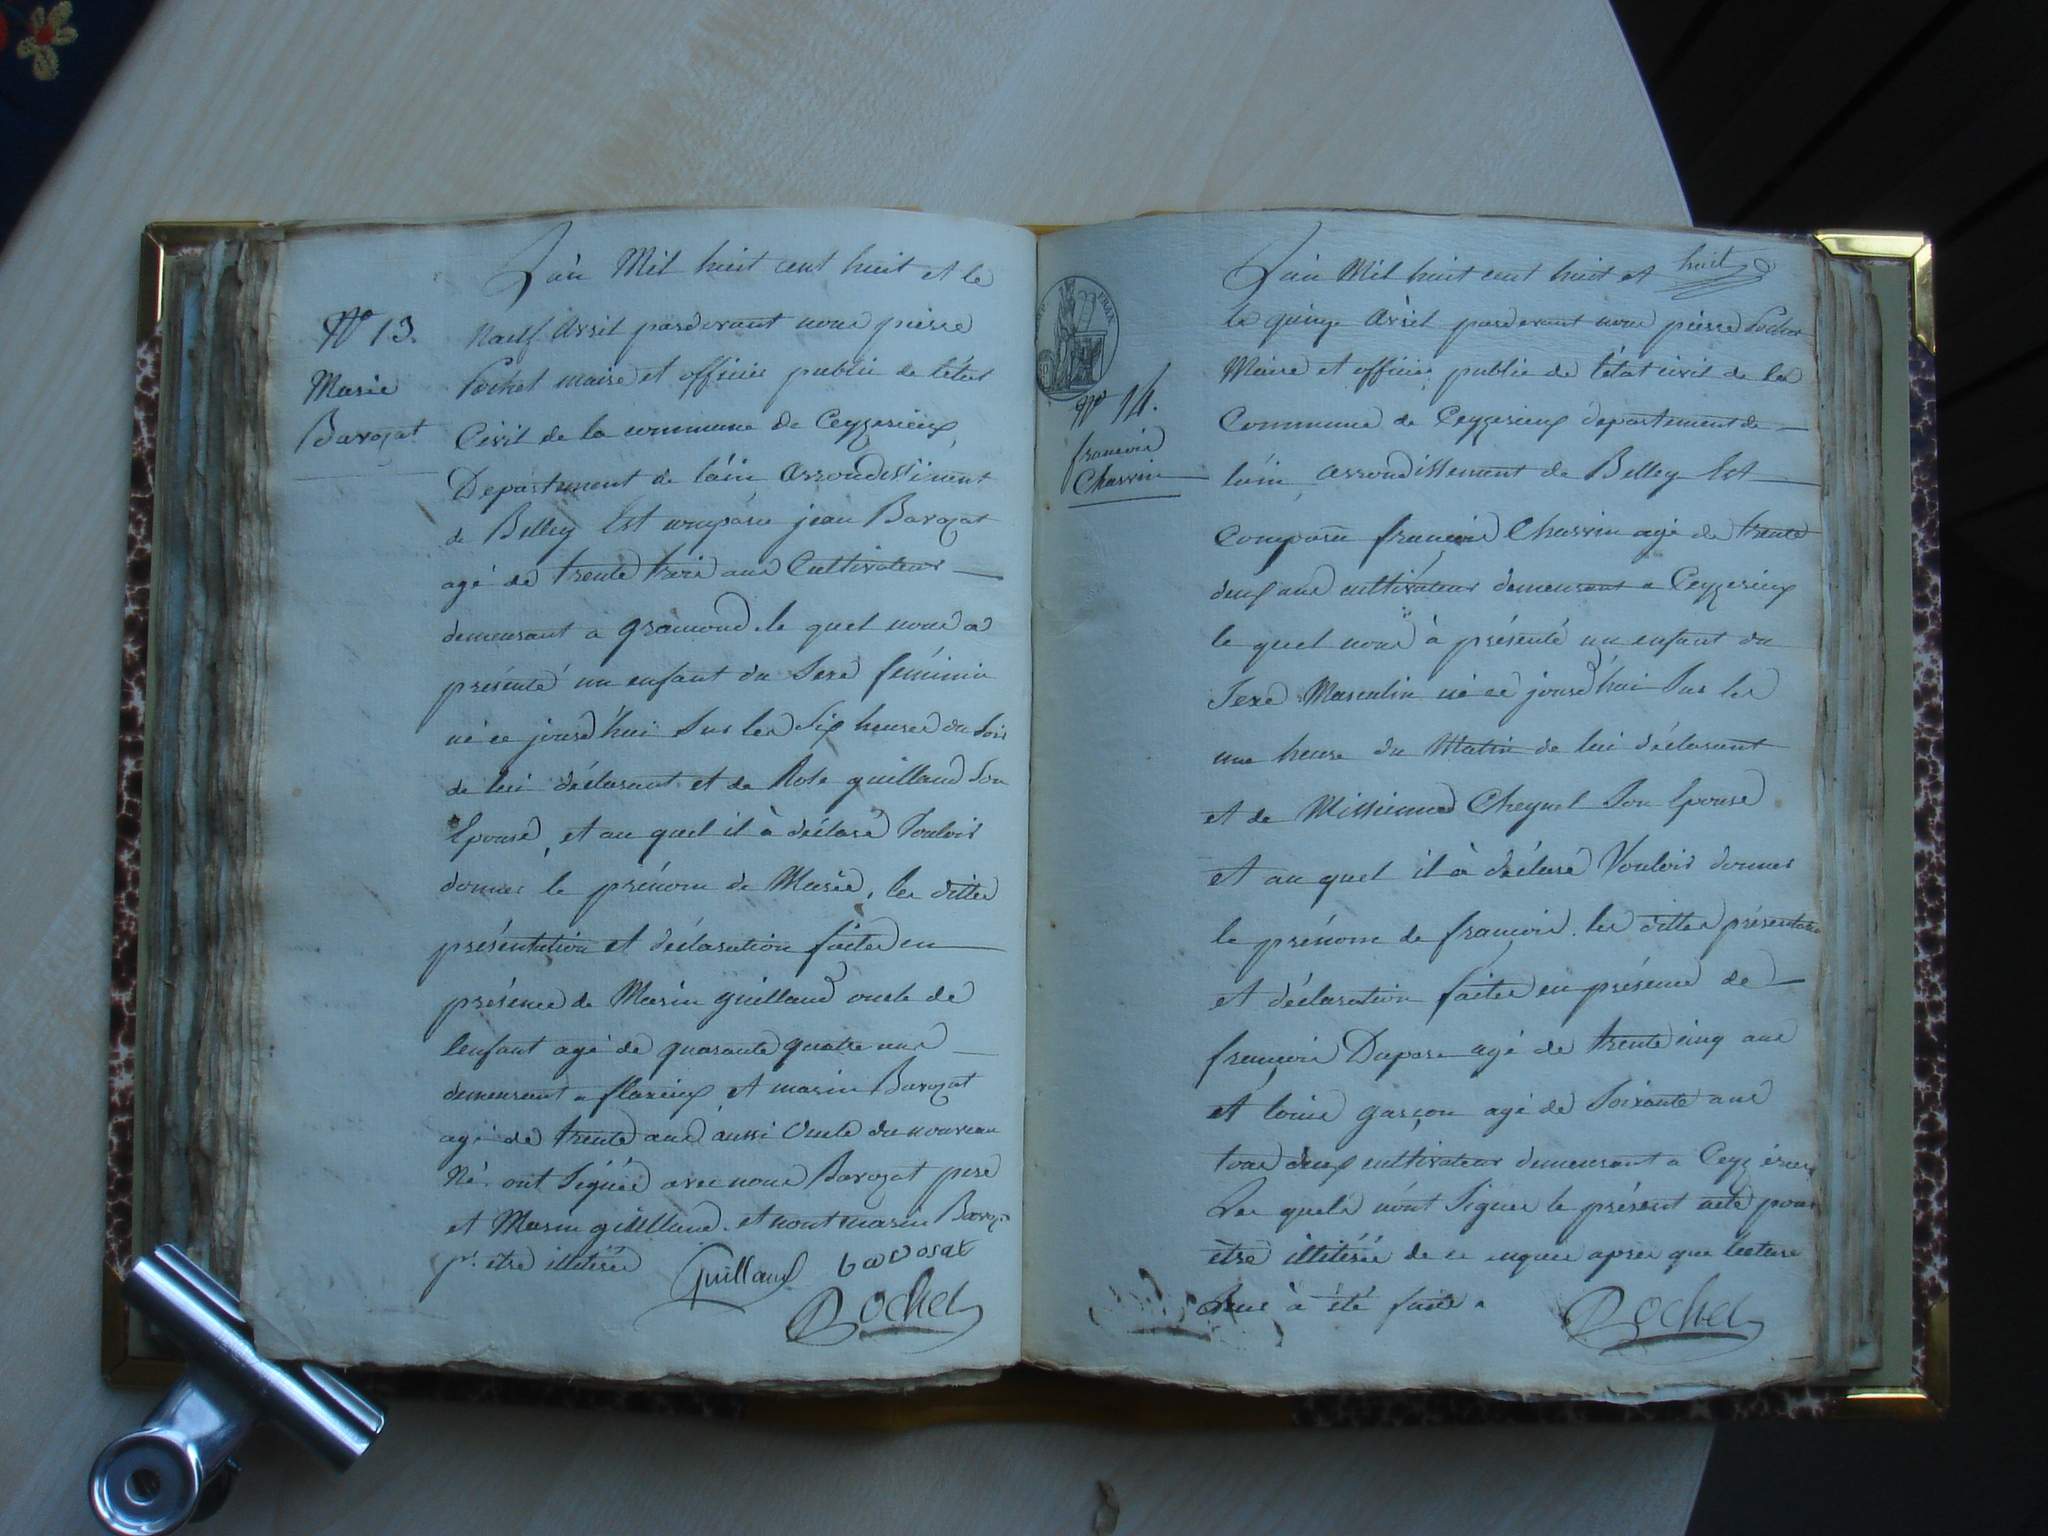 L'an Mil huit cent huit et le
N° 13.
Marie
Barozat
neuf avril pardevant nous pierre
Pochet maire et officier public de l'état
Civil de la commune de Ceyzerieux,
Departement de l'ain arrondissement
de Belley Est comparu jean Barozat
agé de trente trois ans Cultivateur
demeurant a gramond. le quel nous a
présenté un enfant du Sexe féminin
né ce jourd'hui Sur les Six heures du Soir
de lui déclarant et de Rose guilland Son
Epouse, et au quel il à déclaré Vouloir
donner le prénom de Marie, les dittes
présentation et déclaration faites en
présence de Marin guilland oncle de
lenfant agé de quarante quatre ans
demeurant a flaxieux et marin Barozat
agé de trente ans aussi Oncle du nouveau
Né. ont Signés avec nous Barozat pere
et Marin guilland. et nont marin Baroz.
pr. etre illitérés
Guilland barosat
Pochet
L'an Mil huit cent huit et huit
le quinze avril pardevant nous pierre Pochet
N° 14.
francois
Charvin
Maire et officier public de l'état civil de la
Commune de Ceyzerieux departement de
l'ain, arrondissement de Belley Est
Comparu francois Charvin agé de trente
deux ans cultivateur demeurant a Ceyzerieux
le quel nous à présenté un enfant du
Sexe Masculin né ce jourd'hui Sur les
une heure du Matin de lui déclarant
et de Cheynel Son Epouse
et au quel il à déclaré Vouloir donner
le prénom de francois. les dittes présentation
et déclaration faites en présence de
francois agé de trente cinq ans
et louis garçon agé de Soixante ans
tous deux cultivateur demeurant a Ceyzerieux
Les quels n'ont Signer le présent acte pour
être illitérés de ce enquis apres que lecture
leur à été faite.
Pochet